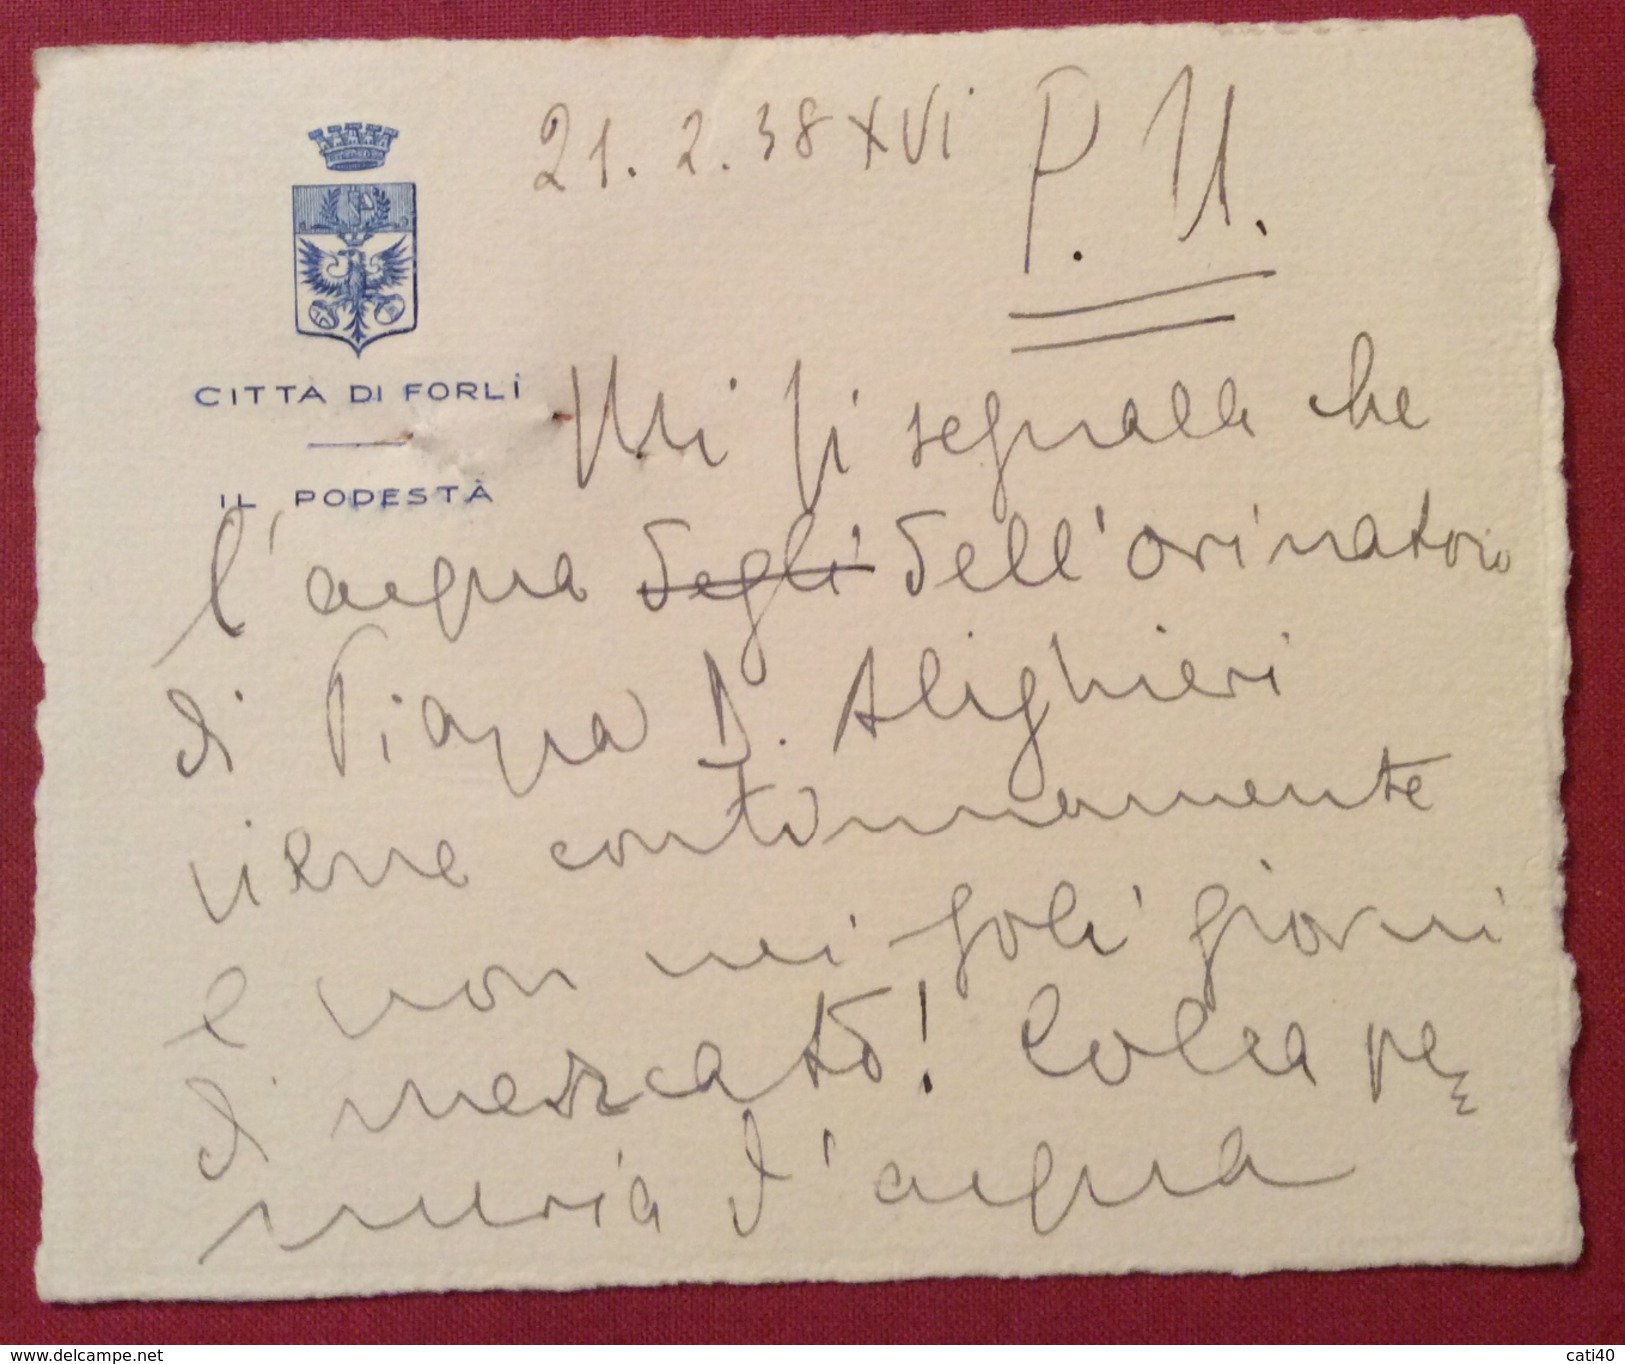 21.2.38 XVI P. U.
CITTÀ DI FORLÌ
IL PODESTÀ
Mi si segnala che
l'acqua degli dell'orinatoio
di Piazza D. Alighieri
viene continuamente
e non nei soli giorni
di mercato! Colla pe=
nuria d'acqua
www.delcampe.net
cati40